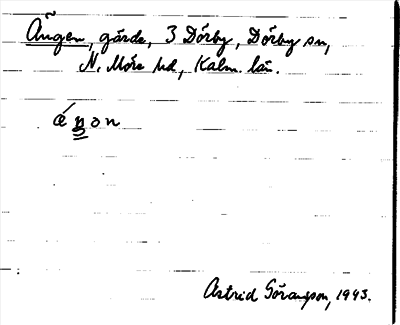 Ängen, gärde, 3 Dörby, Dörby sn,
N. Möre hd, Kalm. län.
Astrid Göransson, 1943.